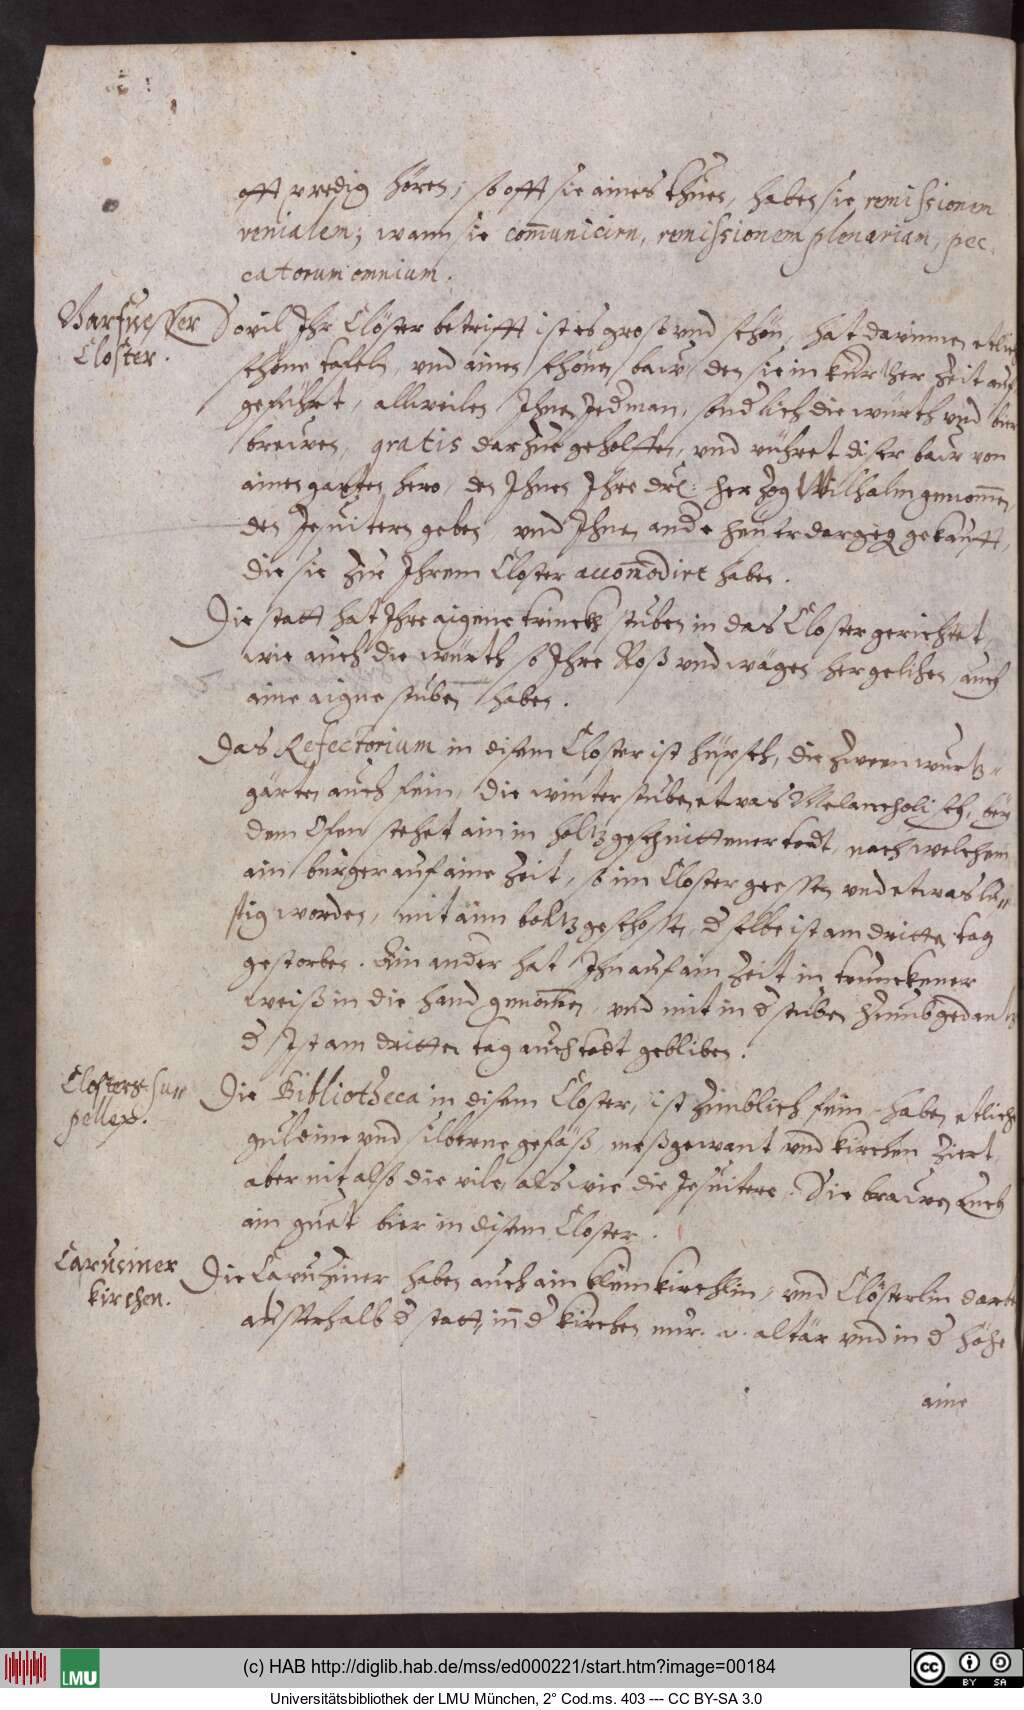 offt predig hören, so offt sie aines thuen, haben sie remissionem
venialem; wann sie com̄unicirn, remissionem plenariam, pec-
catorum omnium.
Barfuesser
Closter.
Sovil Ihr Clöster betrifft ist es gross vnd schön, hat darinnen etlich
schöne tafeln, vnd ainen schönen baw, den sie in kurtzer Zeit auf
geführt, allweilen Ihnen Jedman, sonderlich die würth vnd bier
brewen, gratis darzue geholffen, vnd rühret diser baw von
ainem garten hero, den Ihnen Ihre drl: herzog Wilhalm genom̄en,
den Jesuitern geben, vnd Ihnen andere heuser dargegen gekaufft,
die sie zue Ihrem Closter accom̄odirt haben.
Die statt hat Ihre aigene trinckh stuben in das Closter gerichtet
wie auch die würth so Ihre Roß vnd wägen hergelihen, auch
aine aigne stuben haben.
Das Refectorium in disem Closter ist hüpsch, die zween wurtz-
gärten auch fein, die winterstuben etwas Melancholisch, bey
dem Ofen stehet ain in holtz geschnittener todt, nach welchem
ain burger auf aine Zeit, so im Closter geessen vnd etwas lu-
stig worden, mit aim boltz geschossen, d selbe ist am dritten tag
gestorben. Ein ander hat Ihn auf ain Zeit in trunckener
weiß in die hand genom̄en, vnd mit in d stuben herumb gedantzt
d ist am dritten tag auch todt gebliben.
Closters Su-
pellex.
Die Bibliotheca in disem Closter, ist zimblich fein, haben etliche
guldine vnd silberne gefäß, meßgewant vnd kirchen Ziert,
aber nit also die vile, als wie die Jesuitere. Sie brawen auch
ain guet bier in disem Closter.
Capuciner
kirchen.
Die Capuziner haben auch ain klein kirchlin, vnd Clösterlin darbey
ausserhalb d statt, in d kirchen nur. 2. altär vnd in d höhe
aine
(c) HAB http://diglib.hab.de/mss/ed000221/start.htm?image=00184
LMU
CC BY SA
Universitätsbibliothek der LMU München, 2° Cod.ms. 403 --- CC BY-SA 3.0